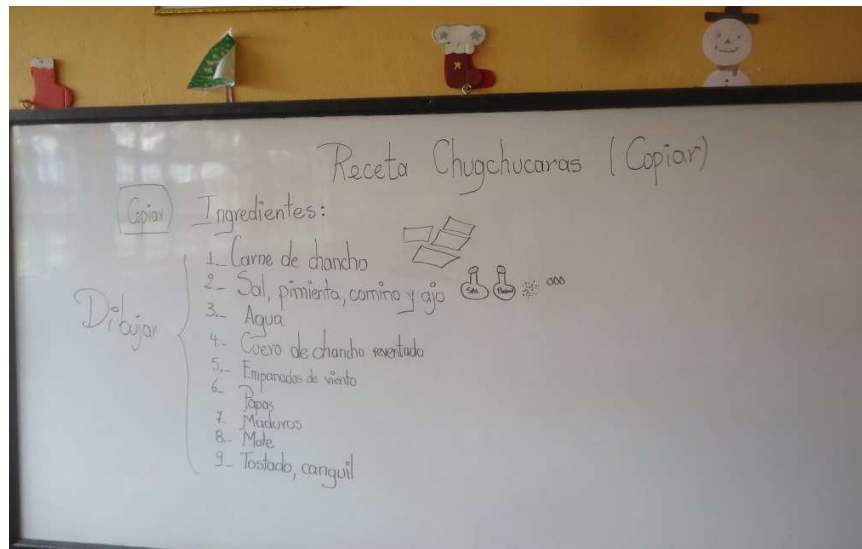 Receta Chugchucaras (Copiar)
Copiar Ingredientes:
Dibujar
1._ Carne de chancho
2._ Sal, pimienta, comino y ajo Sal
3._ Agua
4._ Cuero de chancho reventado
5._ Empanadas de viento
6_ Papas
7_ Maduros
8._ Mote
9_ Tostado, canguil